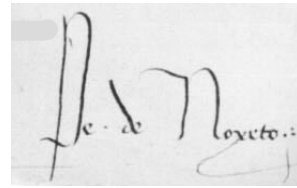 Pe. de Noxeto.